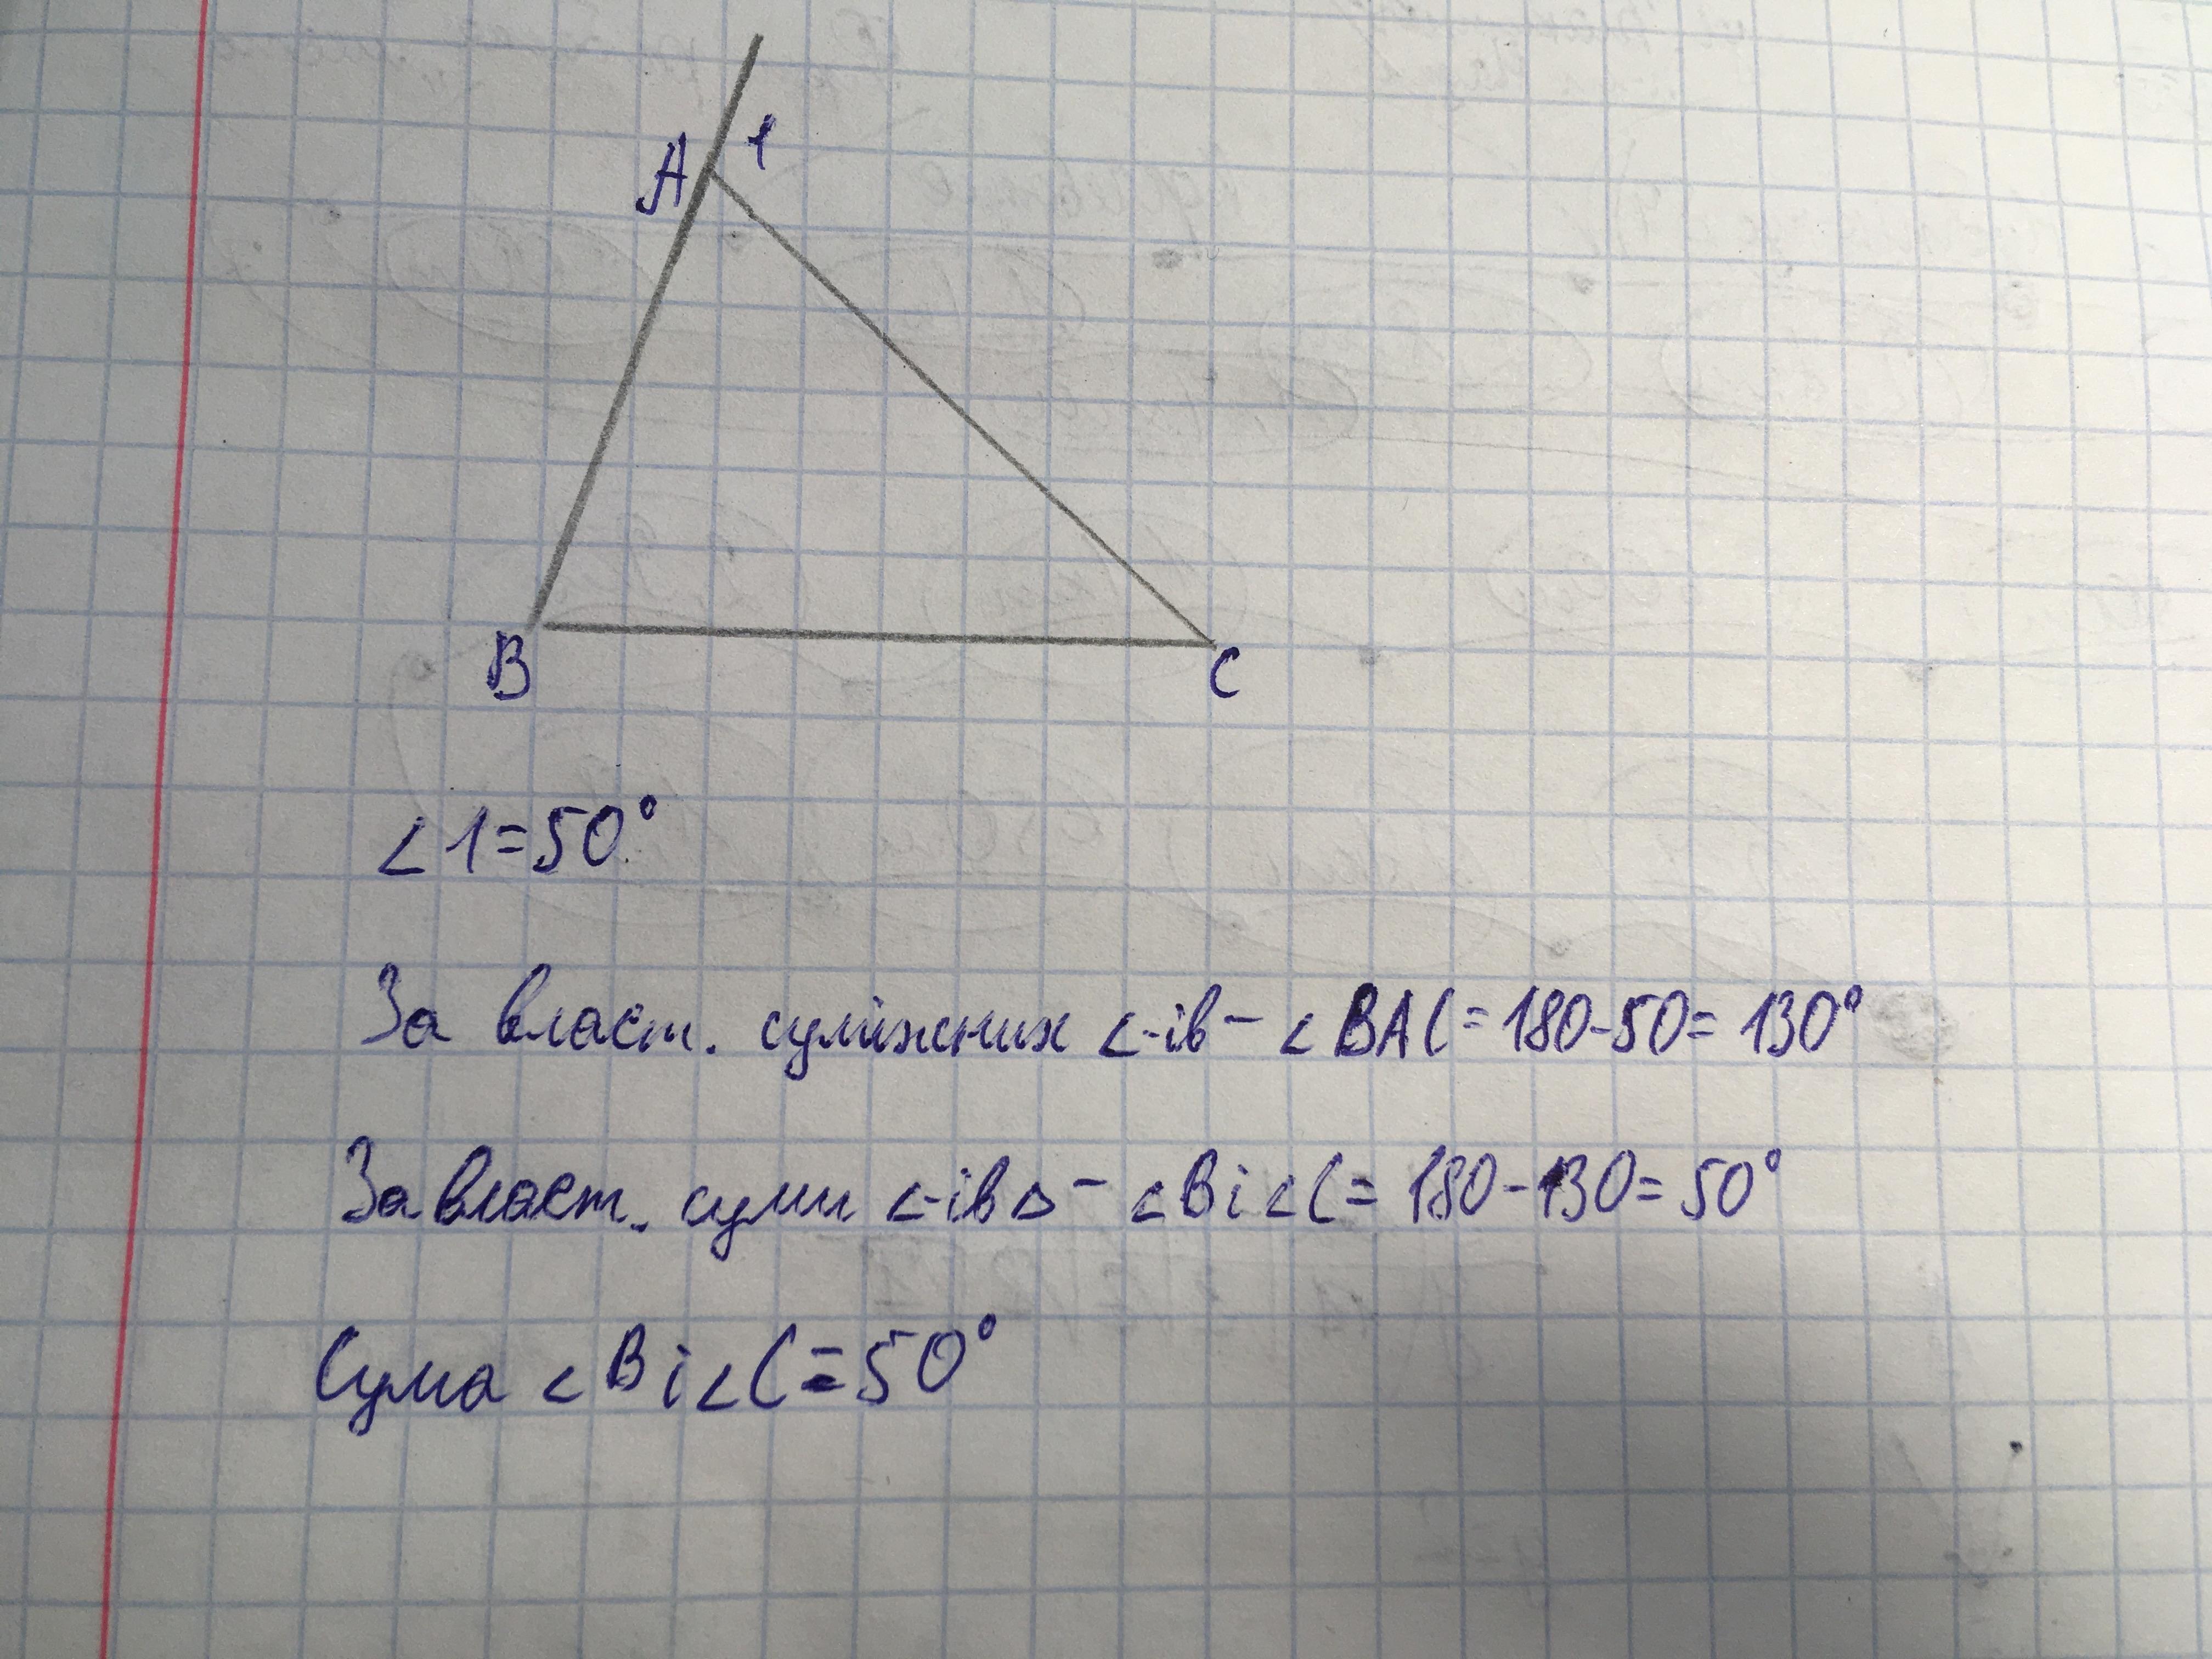 A 1
B C
∠1=50°
За власт. суміжних ∠-ів - ∠BAC=180-50=130°
За власт. суми ∠-ів △ - ∠B і ∠C=180-130=50°
Сума ∠B і ∠C=50°